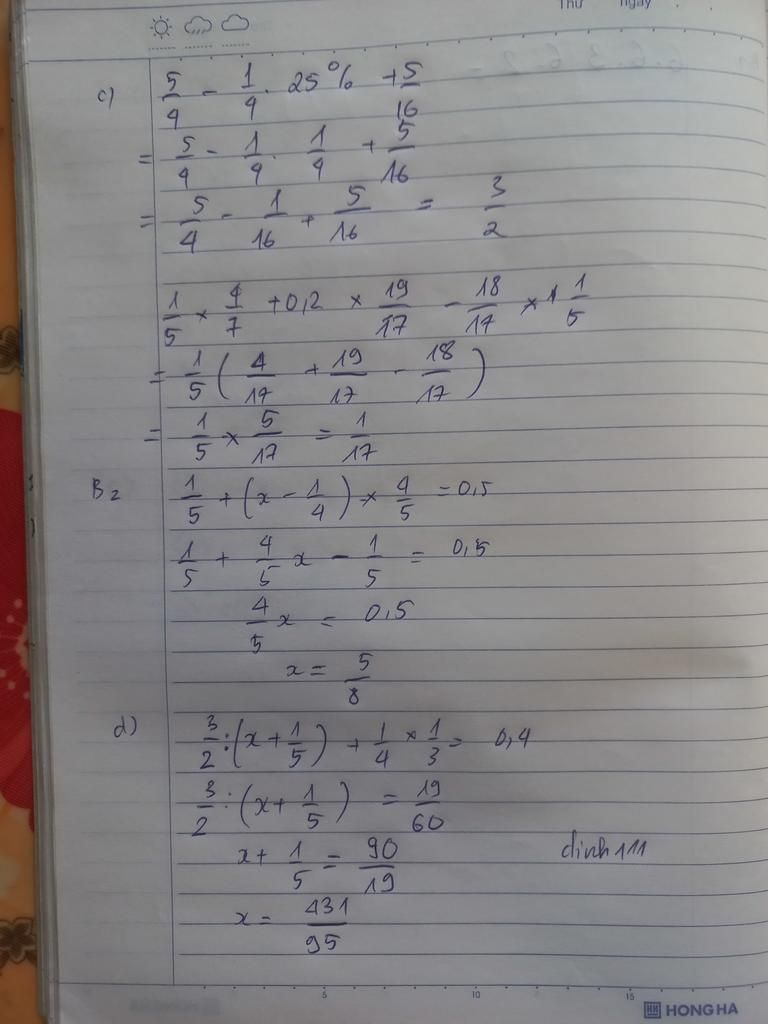 Thứ ngày
c) 5/4 - 1/4 . 25% + 5/16
= 5/4 - 1/4 . 1/4 + 5/16
= 5/4 - 1/16 + 5/16 = 3/2
1/5 × 4/7 + 0,2 × 19/17 - 18/17 × 1/5
= 1/5 ( 4/17 + 19/17 - 18/17 )
= 1/5 × 5/17 = 1/17
B2 1/5 + (x - 1/4) × 4/5 = 0,5
1/5 + 4/5 x - 1/5 = 0,5
4/5 x = 0,5
x = 5/8
d) 3/2 : (x + 1/5) + 1/4 × 1/3 = 0,4
3/2 : (x + 1/5) = 19/60
x + 1/5 = 90/19
dinh111
x = 431/95
5 10 15
HONG HA